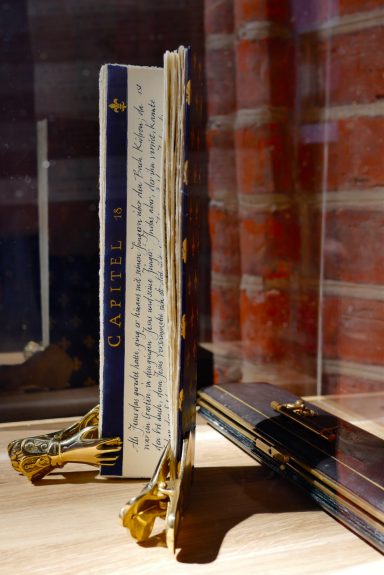 CAPITEL 18
Als Jesus das geredet hatte, ging er hinaus mit seinen Jüngern über den Bach Kidron, da
war ein Garten, in den gingen Jesus und seine Jünger. Judas aber, der ihn verriet, kannte
den Ort auch, denn Jesus versammelte sich oft